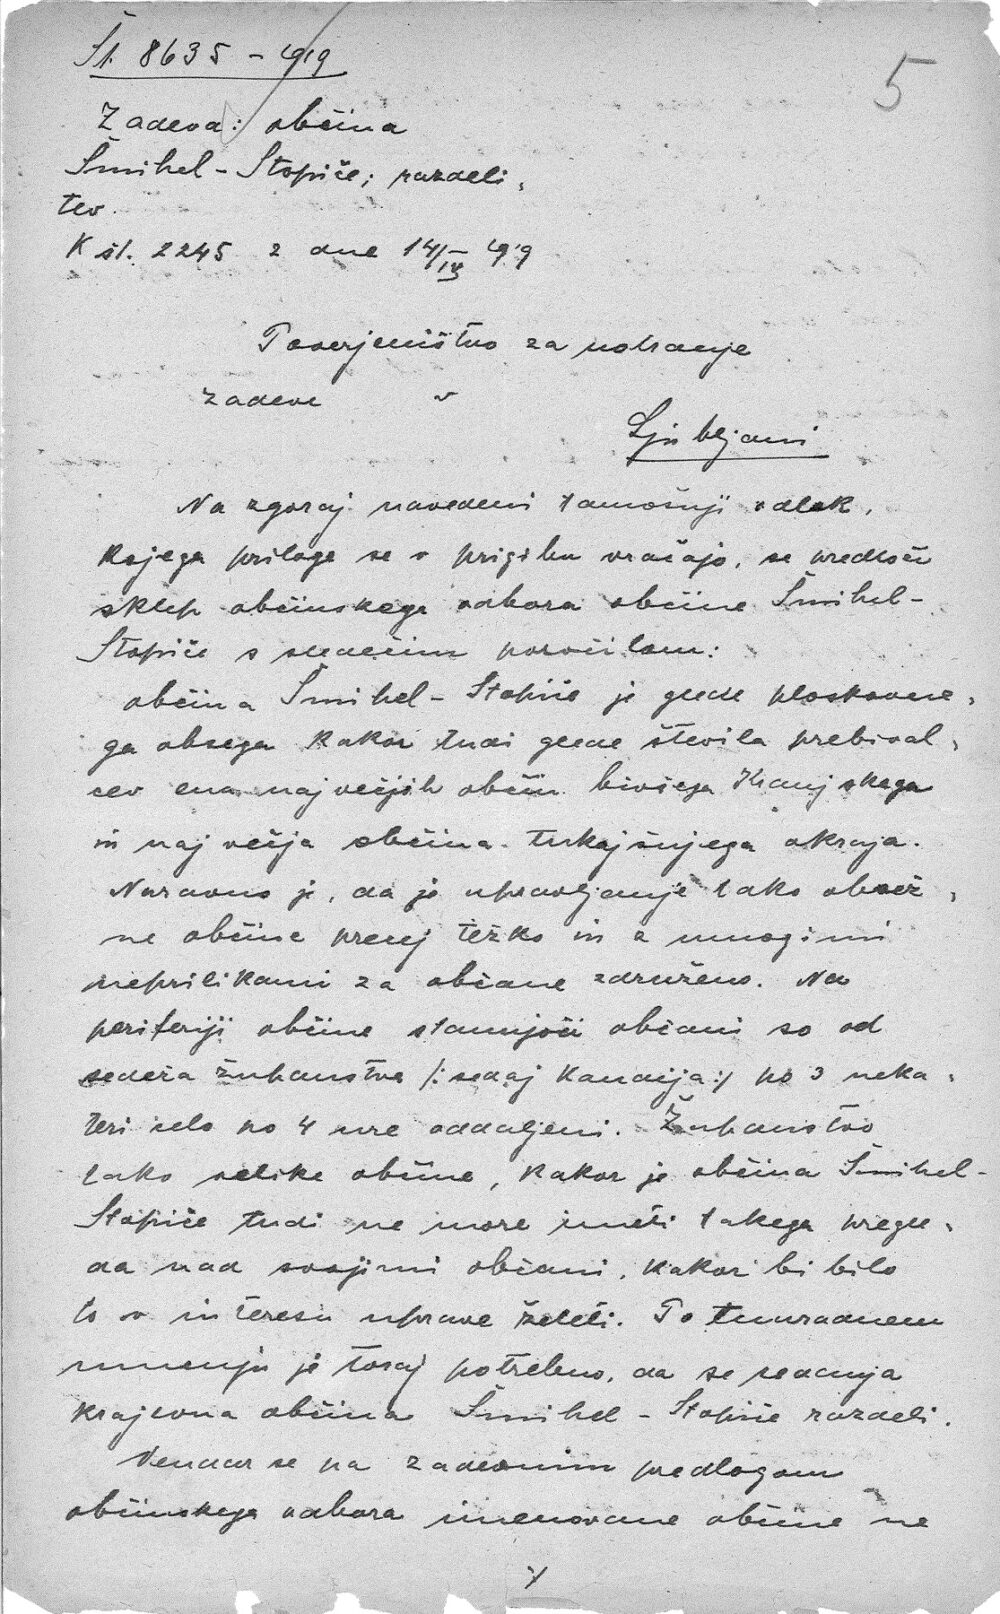 Št. 8635 – 1919
5
Zadeva: občina
Šmihel – Stopiče; razdeli-
tev.
K št. 2245 z dne 14/IV 1919
Poverjeništvo za notranje
zadeve v
Ljubljani
Na zgoraj navedeni tamošnji odlok,
kojega priloge se v prigibu vračajo, se predloži
sklep občinskega odbora občine Šmihel-
Stopiče s sledečim poročilom:
občina Šmihel – Stopiče je glede ploskovne-
ga obsega kakor tudi glede števila prebival-
cev ena največjih občin bivšega Kranjskega
in največja občina tukajšnjega okraja.
Naravno je, da je upravljanje tako obsež-
ne občine precej težko in z mnogimi
neprilikami za občane združeno. Na
periferiji občine stanujoči občani so od
sedeža županstva /: sedaj Kandija :/ po 3 neka-
teri celo po 4 ure oddaljeni. Županstvo
tako velike občine, kakor je občina Šmihel-
Stopiče tudi ne more imeti takega pregle-
da nad svojimi občani, kakor bi bilo
to v interesu uprave želeti. Po tuuradnem
mnenju je torej potrebno, da se sedanja
krajevna občina Šmihel – Stopiče razdeli.
Vendar se pa zadevnim predlogom
občinskega odbora imenovane občine ne